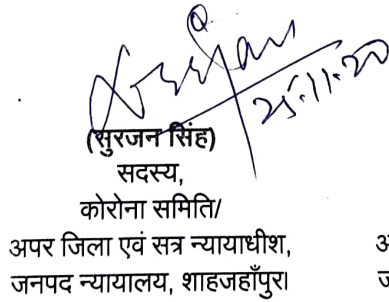 25.11.20
(सुरजन सिंह)
सदस्य,
कोरोना समिति/
अपर जिला एवं सत्र न्यायाधीश,
जनपद न्यायालय, शाहजहाँपुर।